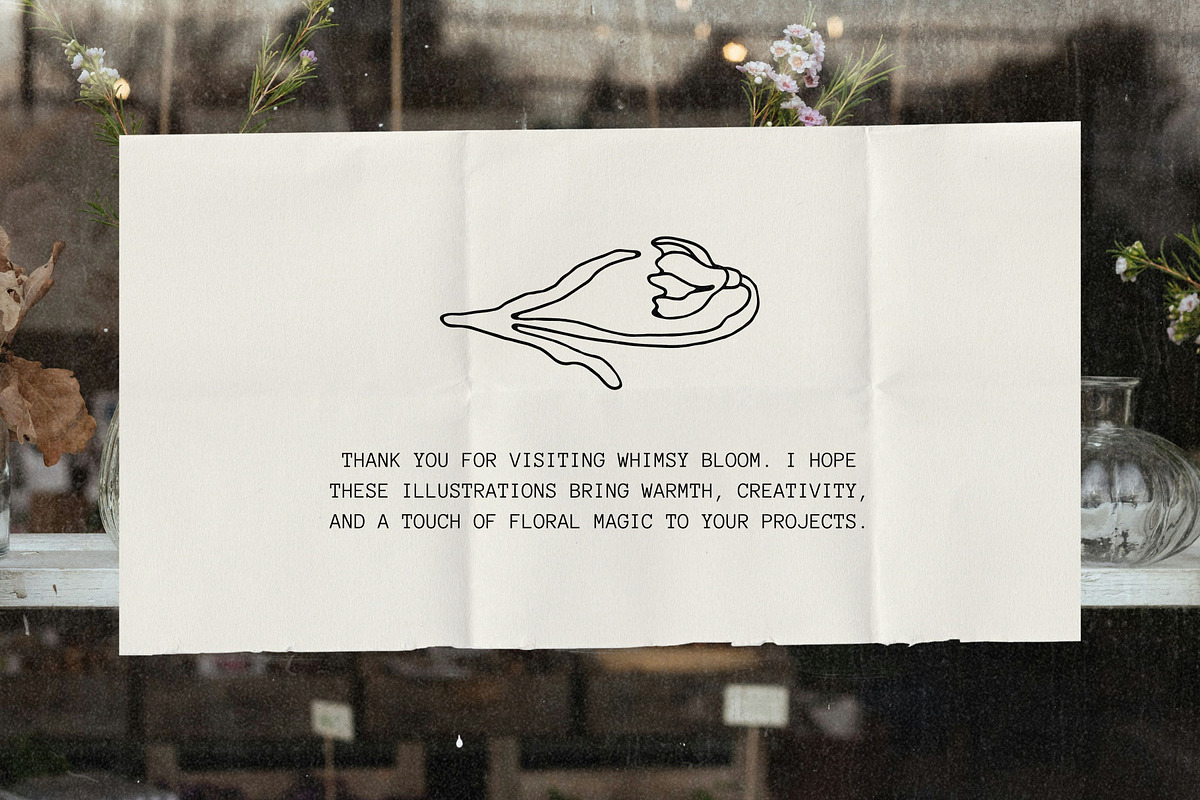 THANK YOU FOR VISITING WHIMSY BLOOM. I HOPE
THESE ILLUSTRATIONS BRING WARMTH, CREATIVITY,
AND A TOUCH OF FLORAL MAGIC TO YOUR PROJECTS.